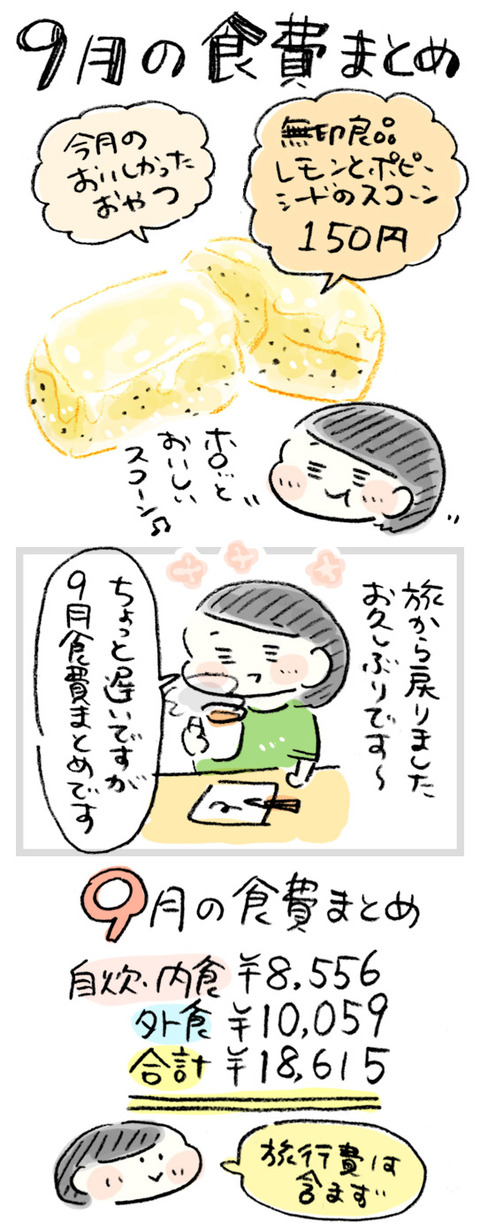 9月の食費まとめ
今月の
おいしかった
おやつ
無印良品
レモンとポピー
シードのスコーン
150円
ホロッと
おいしい
スコーン♫
旅から戻りました
お久しぶりです〜
ちょっと遅いですが
9月食費まとめです
9月の食費まとめ
自炊・内食 ¥8,556
外食 ¥10,059
合計 ¥18,615
旅行費は
含まず